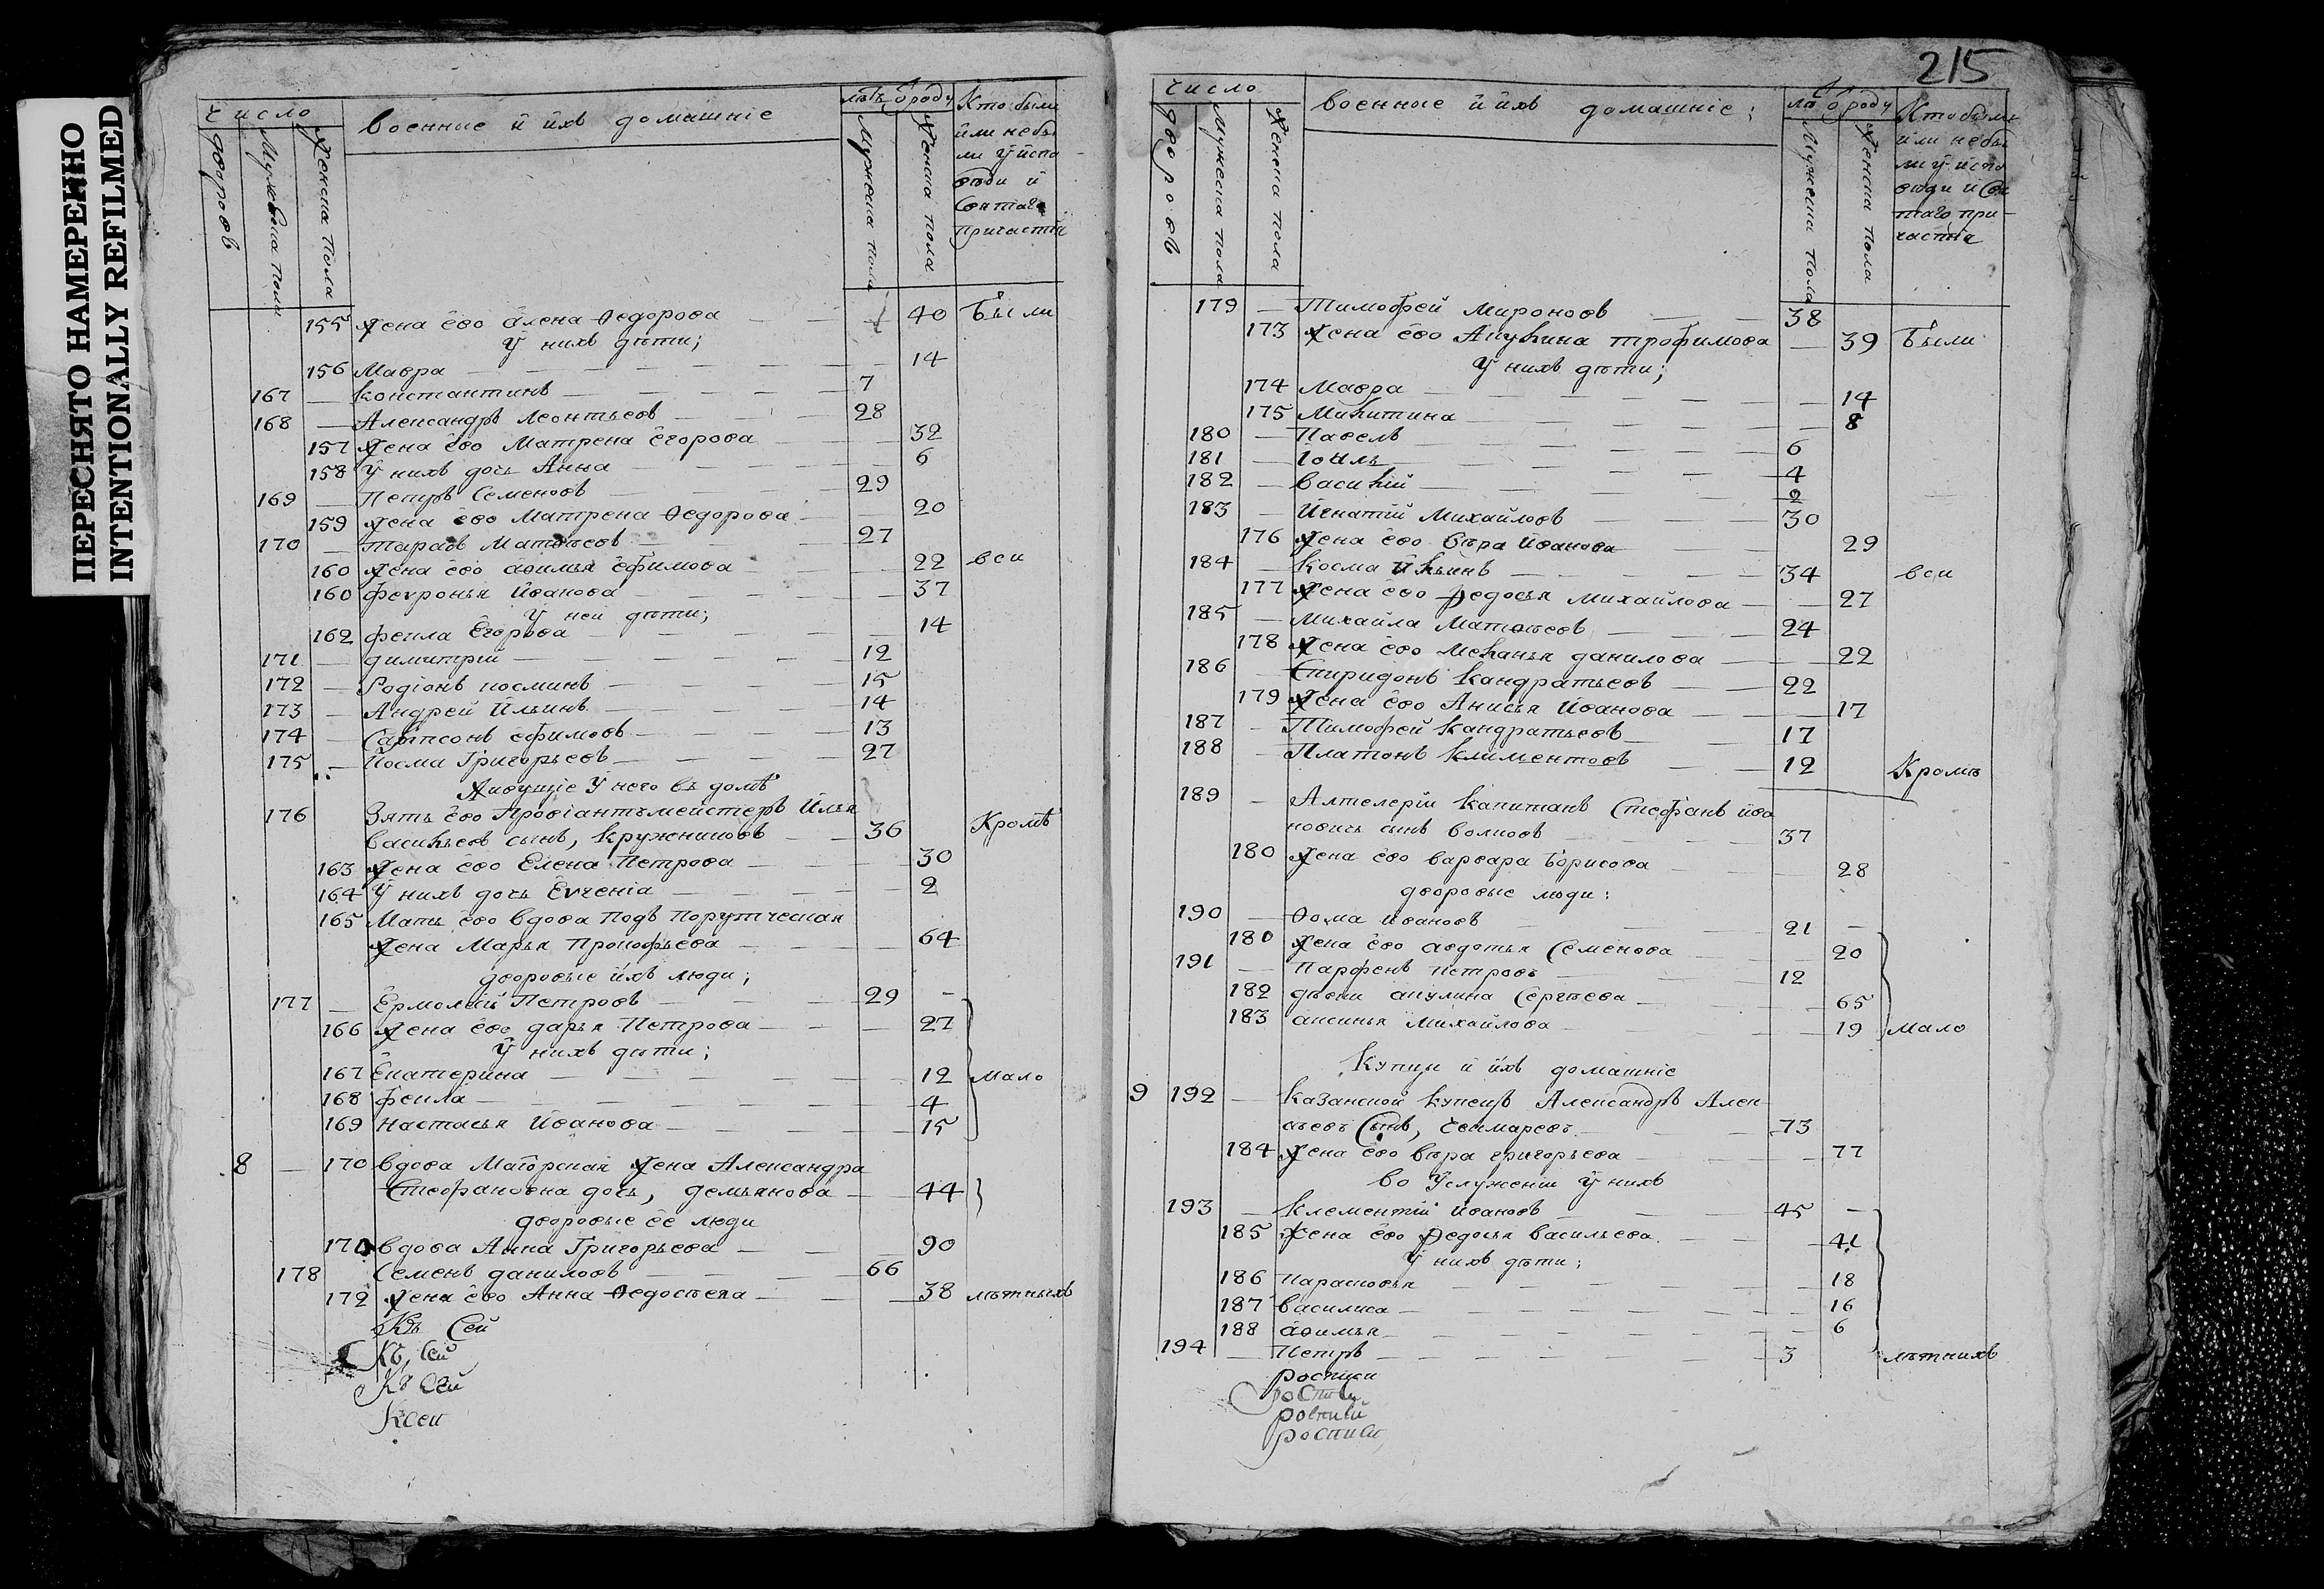 ПЕРЕСНЯТО НАМЕРЕННО
INTENTIONALLY REFILMED
число
дворовъ
Мужеска пола
Женска пола
военные и ихъ домашніе
лѣтъ ѿ роду
Мужеска пола
Женска пола
Кто были
или небы
ли у испо
вѣди и
Святаго
причастія
155 жена ево алена Ѳедорова 40 Были
У нихъ дѣти;
156 Мавра 14
167 — константинъ 7
168 — Александръ леонтьевъ 28
157 жена ево Матрена Егорова 32
158 У нихъ дочь Анна 6
169 — Петръ Семеновъ 29
159 жена ево Матрена Ѳедорова 20
170 — тарасъ Матвѣевъ 27
160 жена ево авимья Ефимова 22 вси
160 февронья Иванова 37
У ней дѣти;
162 фекла Егорова 14
171 — димитрій 12
172 — Родіонъ косминъ 15
173 — Андрей Ильинъ 14
174 — Сампсонъ ефимовъ 13
175 — Косма Григорьевъ 27
Живущіе У него въ домѣ
176 Зять ево Провіантъмейстеръ Илья
Васильевъ сынъ, кружениковъ 36 Кромѣ
163 жена ево Елена Петрова 30
164 У нихъ дочь Евгеніа 2
165 Мать ево вдова Подъ Порутческая
жена Марья Прокофьева 64
дворовые ихъ люди;
177 — Ермолай Петровъ 29 —
166 жена ево дарья Петрова 27
У нихъ дѣти;
167 Екатерина 12 мало
168 фекла 4
169 Настасья Иванова 15
8 — 170 вдова Маіорская жена Александра
Стефановна дочь, демьянова 44
дворовые ее люди
170 вдова Анна Григорьева 90
178 Семенъ даниловъ 66
172 жена ево Анна Ѳедосѣева 38 лѣтныхъ
Къ Сей
Къ Сей
Къ Сей
К сей
215
число
дворовъ
Мужеска пола
Женска пола
военные и ихъ домашніе;
лѣ ѿ роду
Мужеска пола
Женска пола
Кто были
или небы
ли у испо
вѣди и Свя
таго при-
частіа
179 — Тимофей Мироновъ 38
173 жена ево Акулина трофимова 39 Были
У нихъ дѣти;
174 Мавра 14
175 Микитина 8
180 — Павелъ 6
181 — Іоиль 4
182 — Василій 2
183 — Игнатій Михайловъ 30
176 жена ево вѣра Иванова 29
184 — Косма Ильинъ 34 вси
177 жена ево федосья Михайлова 27
185 — Михайла Матвѣевъ 24
178 жена ево меланья данилова 22
186 — Спиридонъ Кандратьевъ 22
179 жена ево Анисья Иванова 17
187 — Тимофей Кандратьевъ 17
188 — Платонъ климентовъ 12 Кромѣ
189 — Алтелеріи капитанъ Стефанъ ива
новичъ сынъ волковъ 37
180 жена ево варвара Борисова 28
дворовые люди:
190 — Ѳома ивановъ 21 —
180 жена ево авдотья Семенова 20
191 — Парфенъ петровъ 12
182 дѣвки акулина Сергѣева 65
183 аксинья Михайлова 19 мало
Купцы и ихъ домашніе
9 192 — Казанской купецъ Александръ Алек
сѣевъ Сынъ, Чекмаревъ 73
184 жена ево вѣра григорьева 77
во Услуженіи У нихъ
193 — Клементій ивановъ 45 —
185 жена ево федосья васильева 41
У нихъ дѣти;
186 парасковья 18
187 василиса 16
188 авимья 6
194 — Петръ 3 лѣтнихъ
росписи
росписи
росписи
росписи